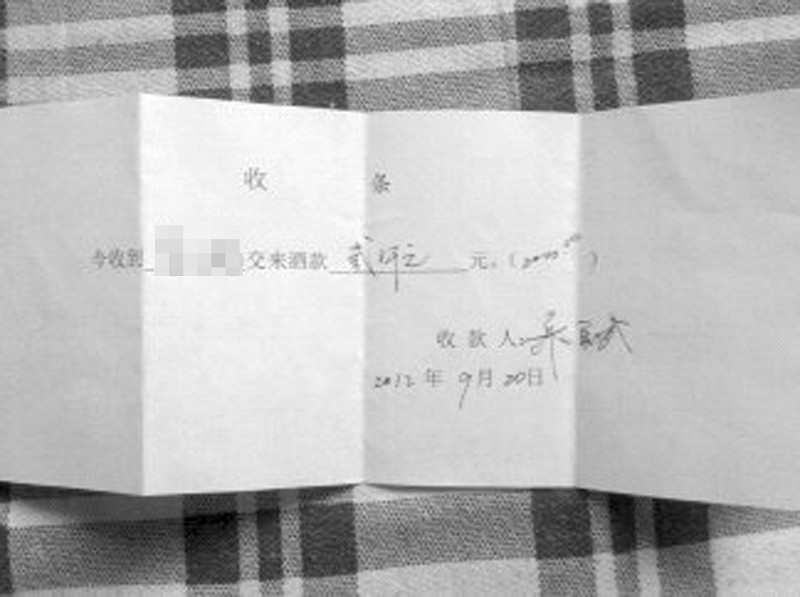 收 条
今收到 交来酒款 贰仟元 元。(2000.00)
收款人:
2012年9月20日